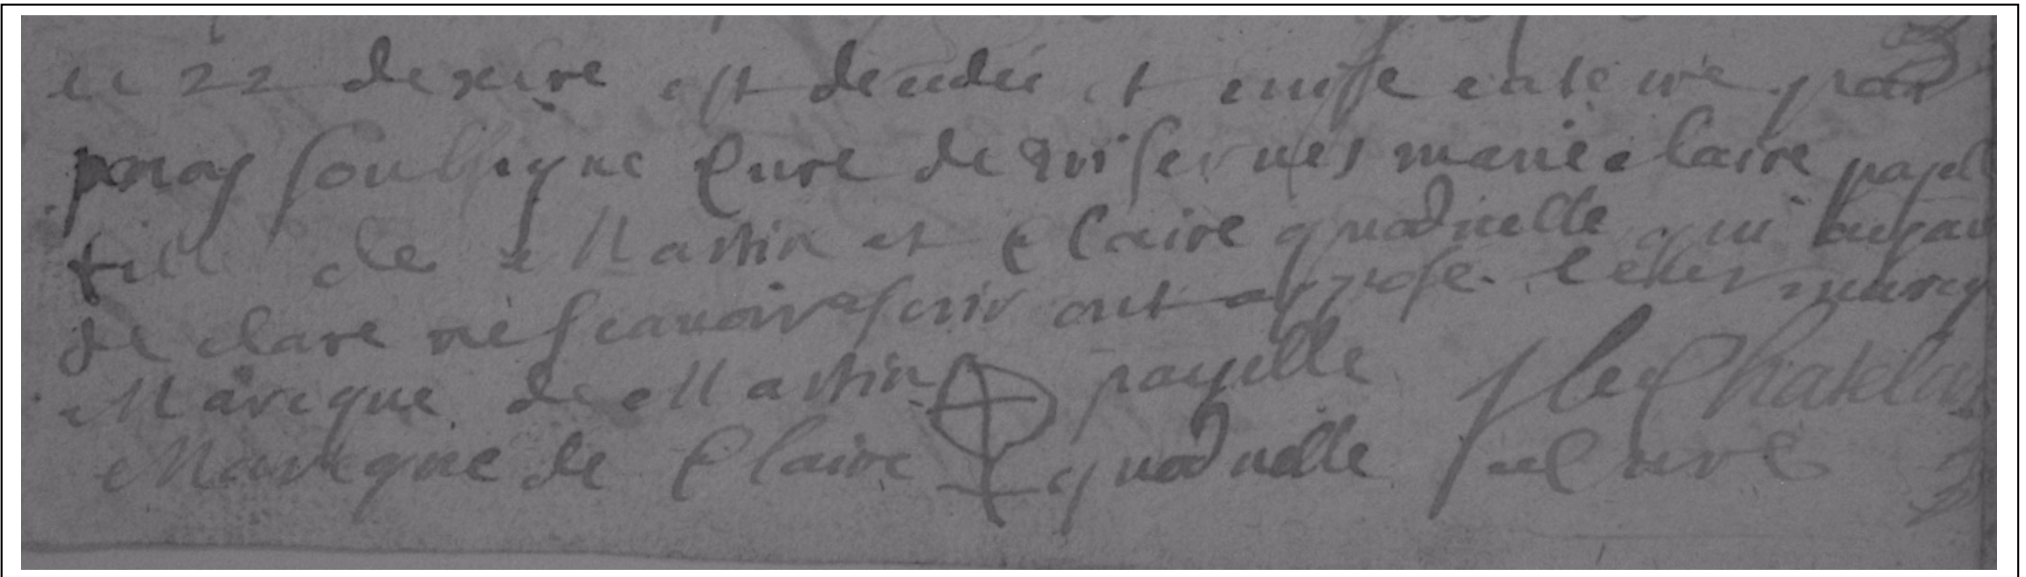 le 22 de xbre est decedée et mise en terre par
moy soubsigne Cure de Wisernes marie claire payel
fille de Martin et Claire quadruelle qui
declare ne scavoir escrir ont appose leur marcq
Marcque de Martin payelle J le Chatelain
Marcque de Claire quadruelle Cure